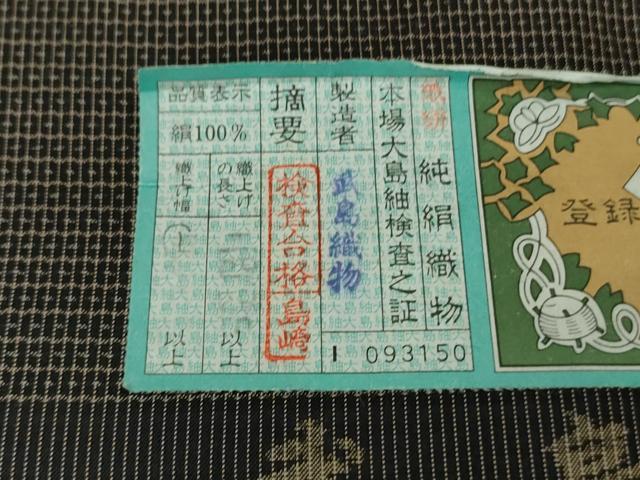 純絹織物
本場大島紬検査之証
製造者
武島織物
1 093150
摘要
検査合格
島崎
品質表示
絹100%
織上げの長さ
以上
織上げ幅
以上
登録